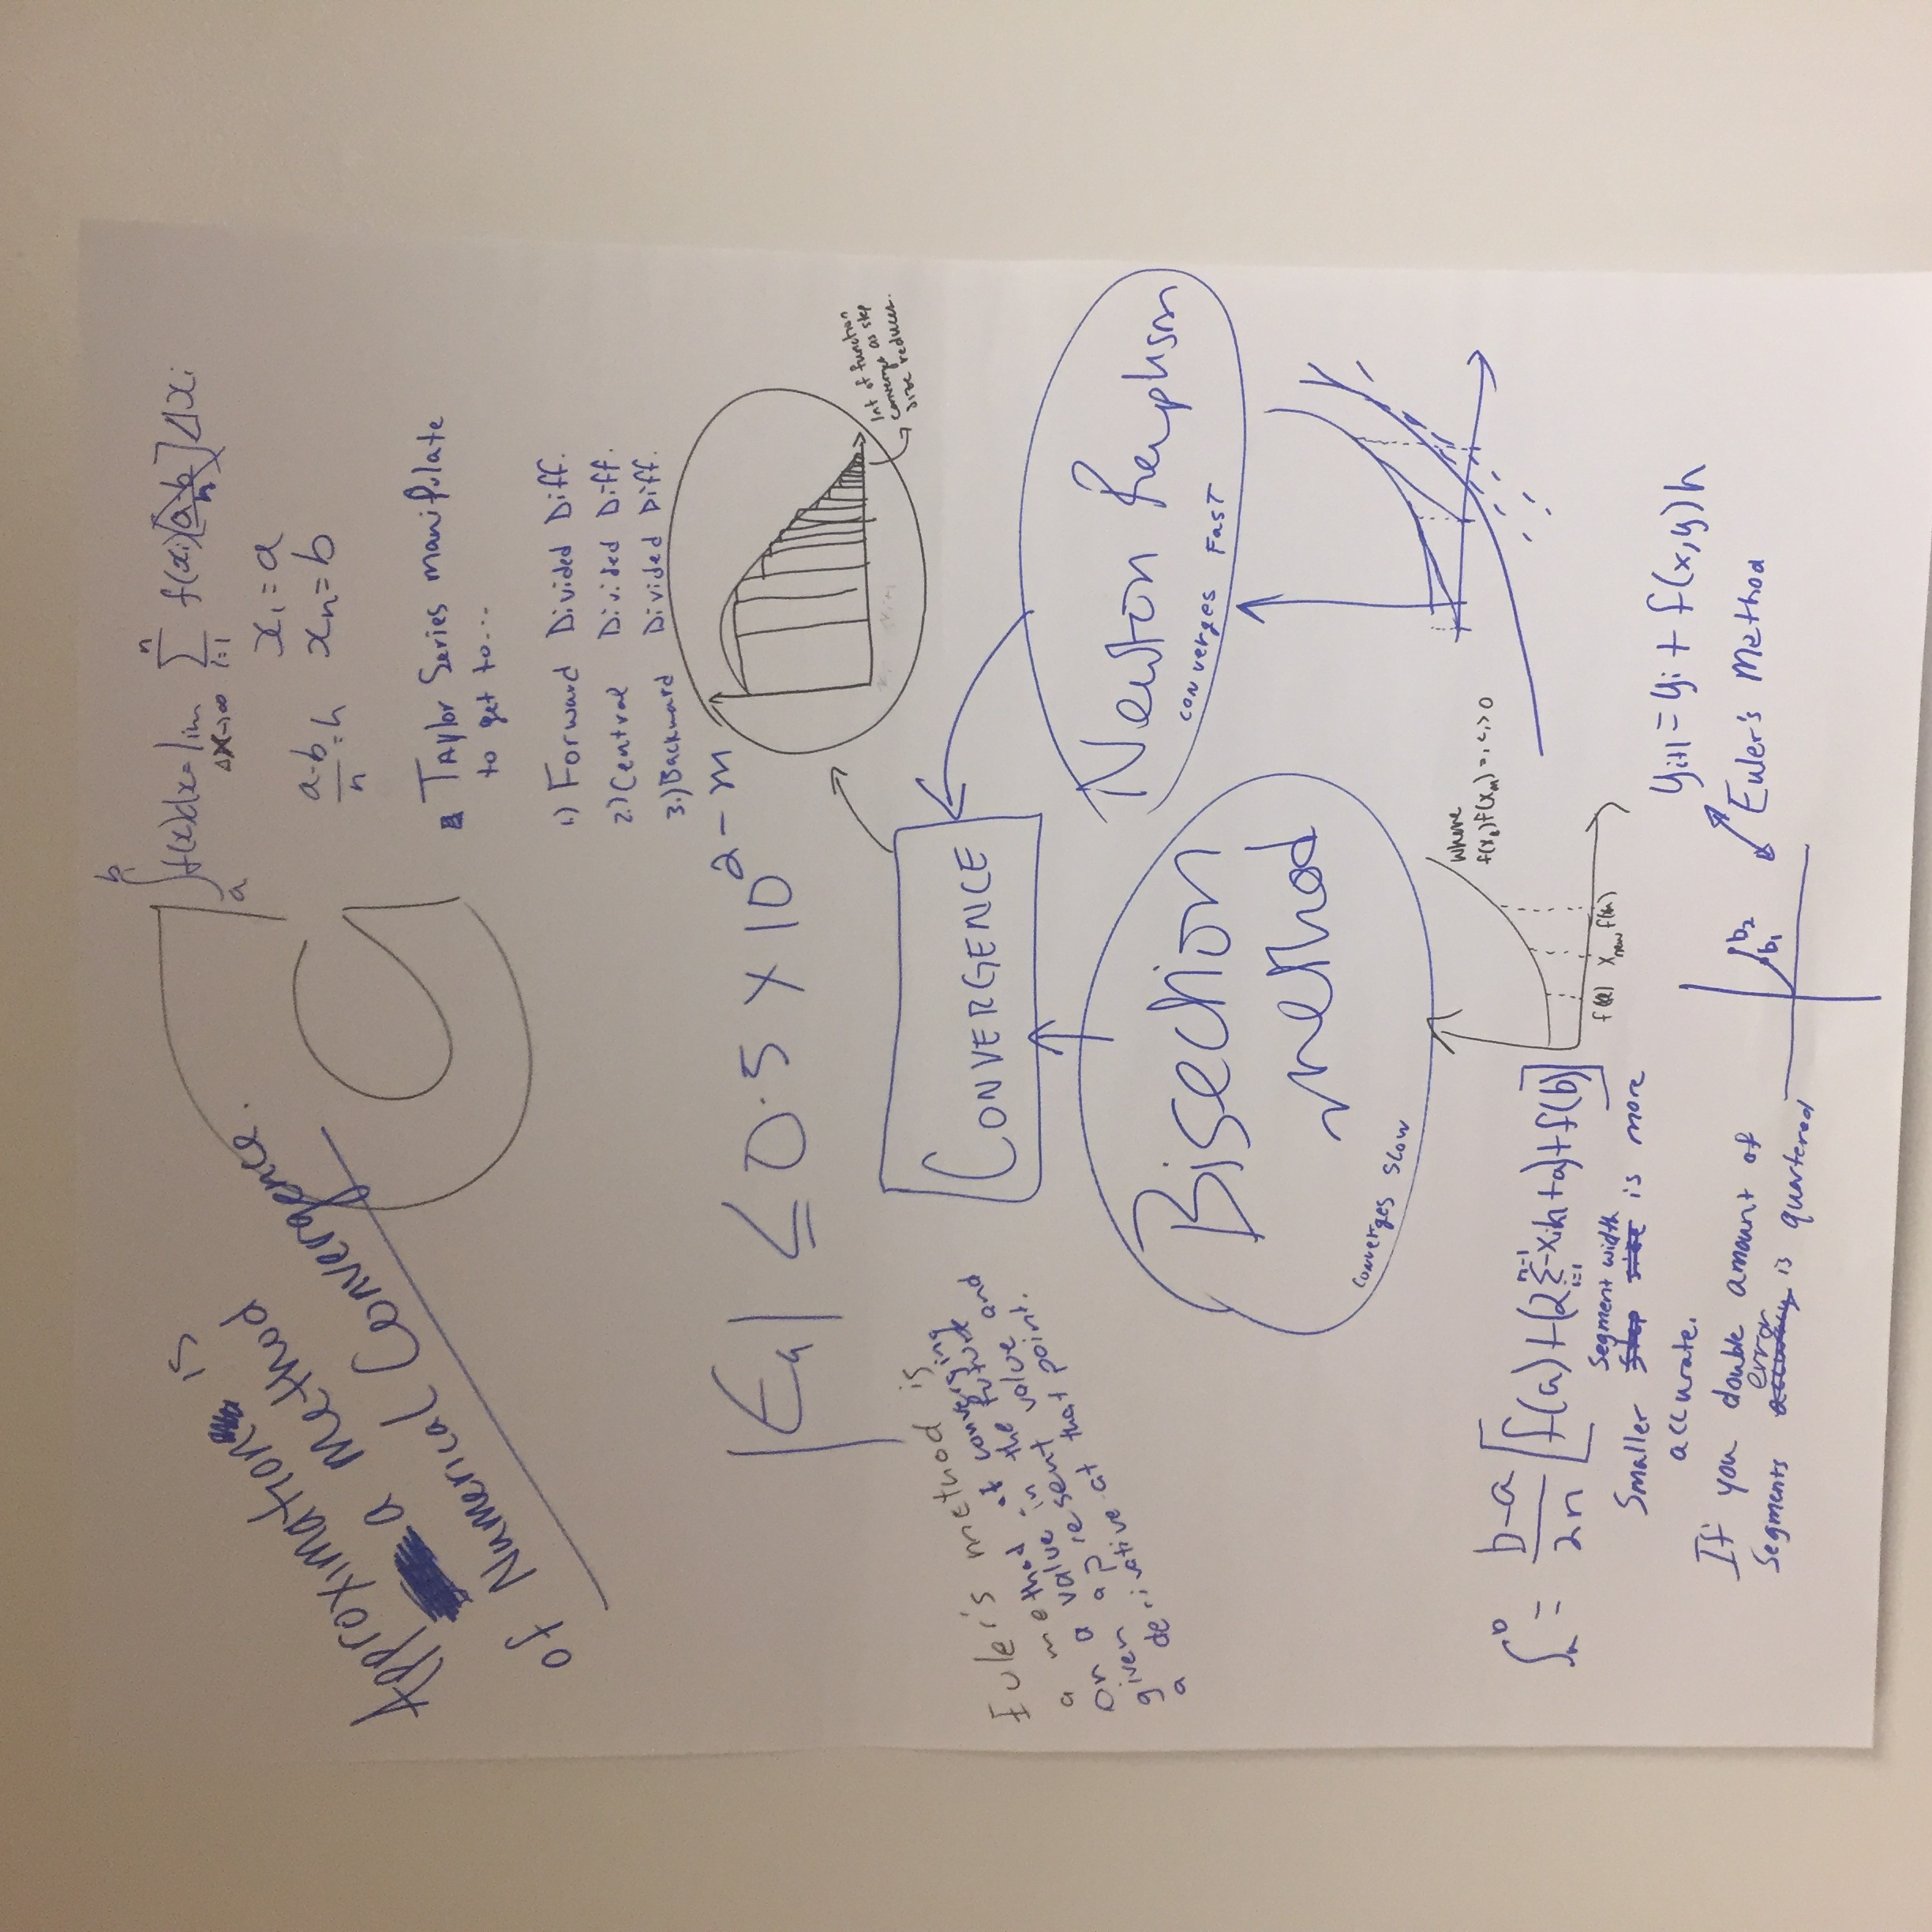 Approximation is
a method
of Numerical Convergence.
∫ₐᵇ f(x)dx = lim Δx→∞ Σ i=1 n f(xᵢ)[a-b/n]Δxᵢ
a-b/n = h
x₁ = a
xₙ = b
Taylor Series manipulate
to get to...
1.) Forward Divided Diff.
2.) Central Divided Diff.
3.) Backward Divided Diff.
|Eₐ| ≤ 0.5 × 10^2-m
Int of function
converge as step
size reduces.
Euler's method is
a method of converging
on a value in the future
given a present value and
a derivative at that point.
CONVERGENCE
Bisection
method
converges slow
Newton Raphson
converges Fast
where
f(xₗ)f(xₘ) = i<,>0
f(a) xnew f(b)
∫ₐᵇ = b-a/2n [f(a)+(2Σ i=1 n-1 -xᵢh+a)+f(b)]
Smaller segment width is more
accurate.
If you double amount of
segments error is quartered
b₂
b₁
yi+1 = yi + f(x,y)h
Euler's Method